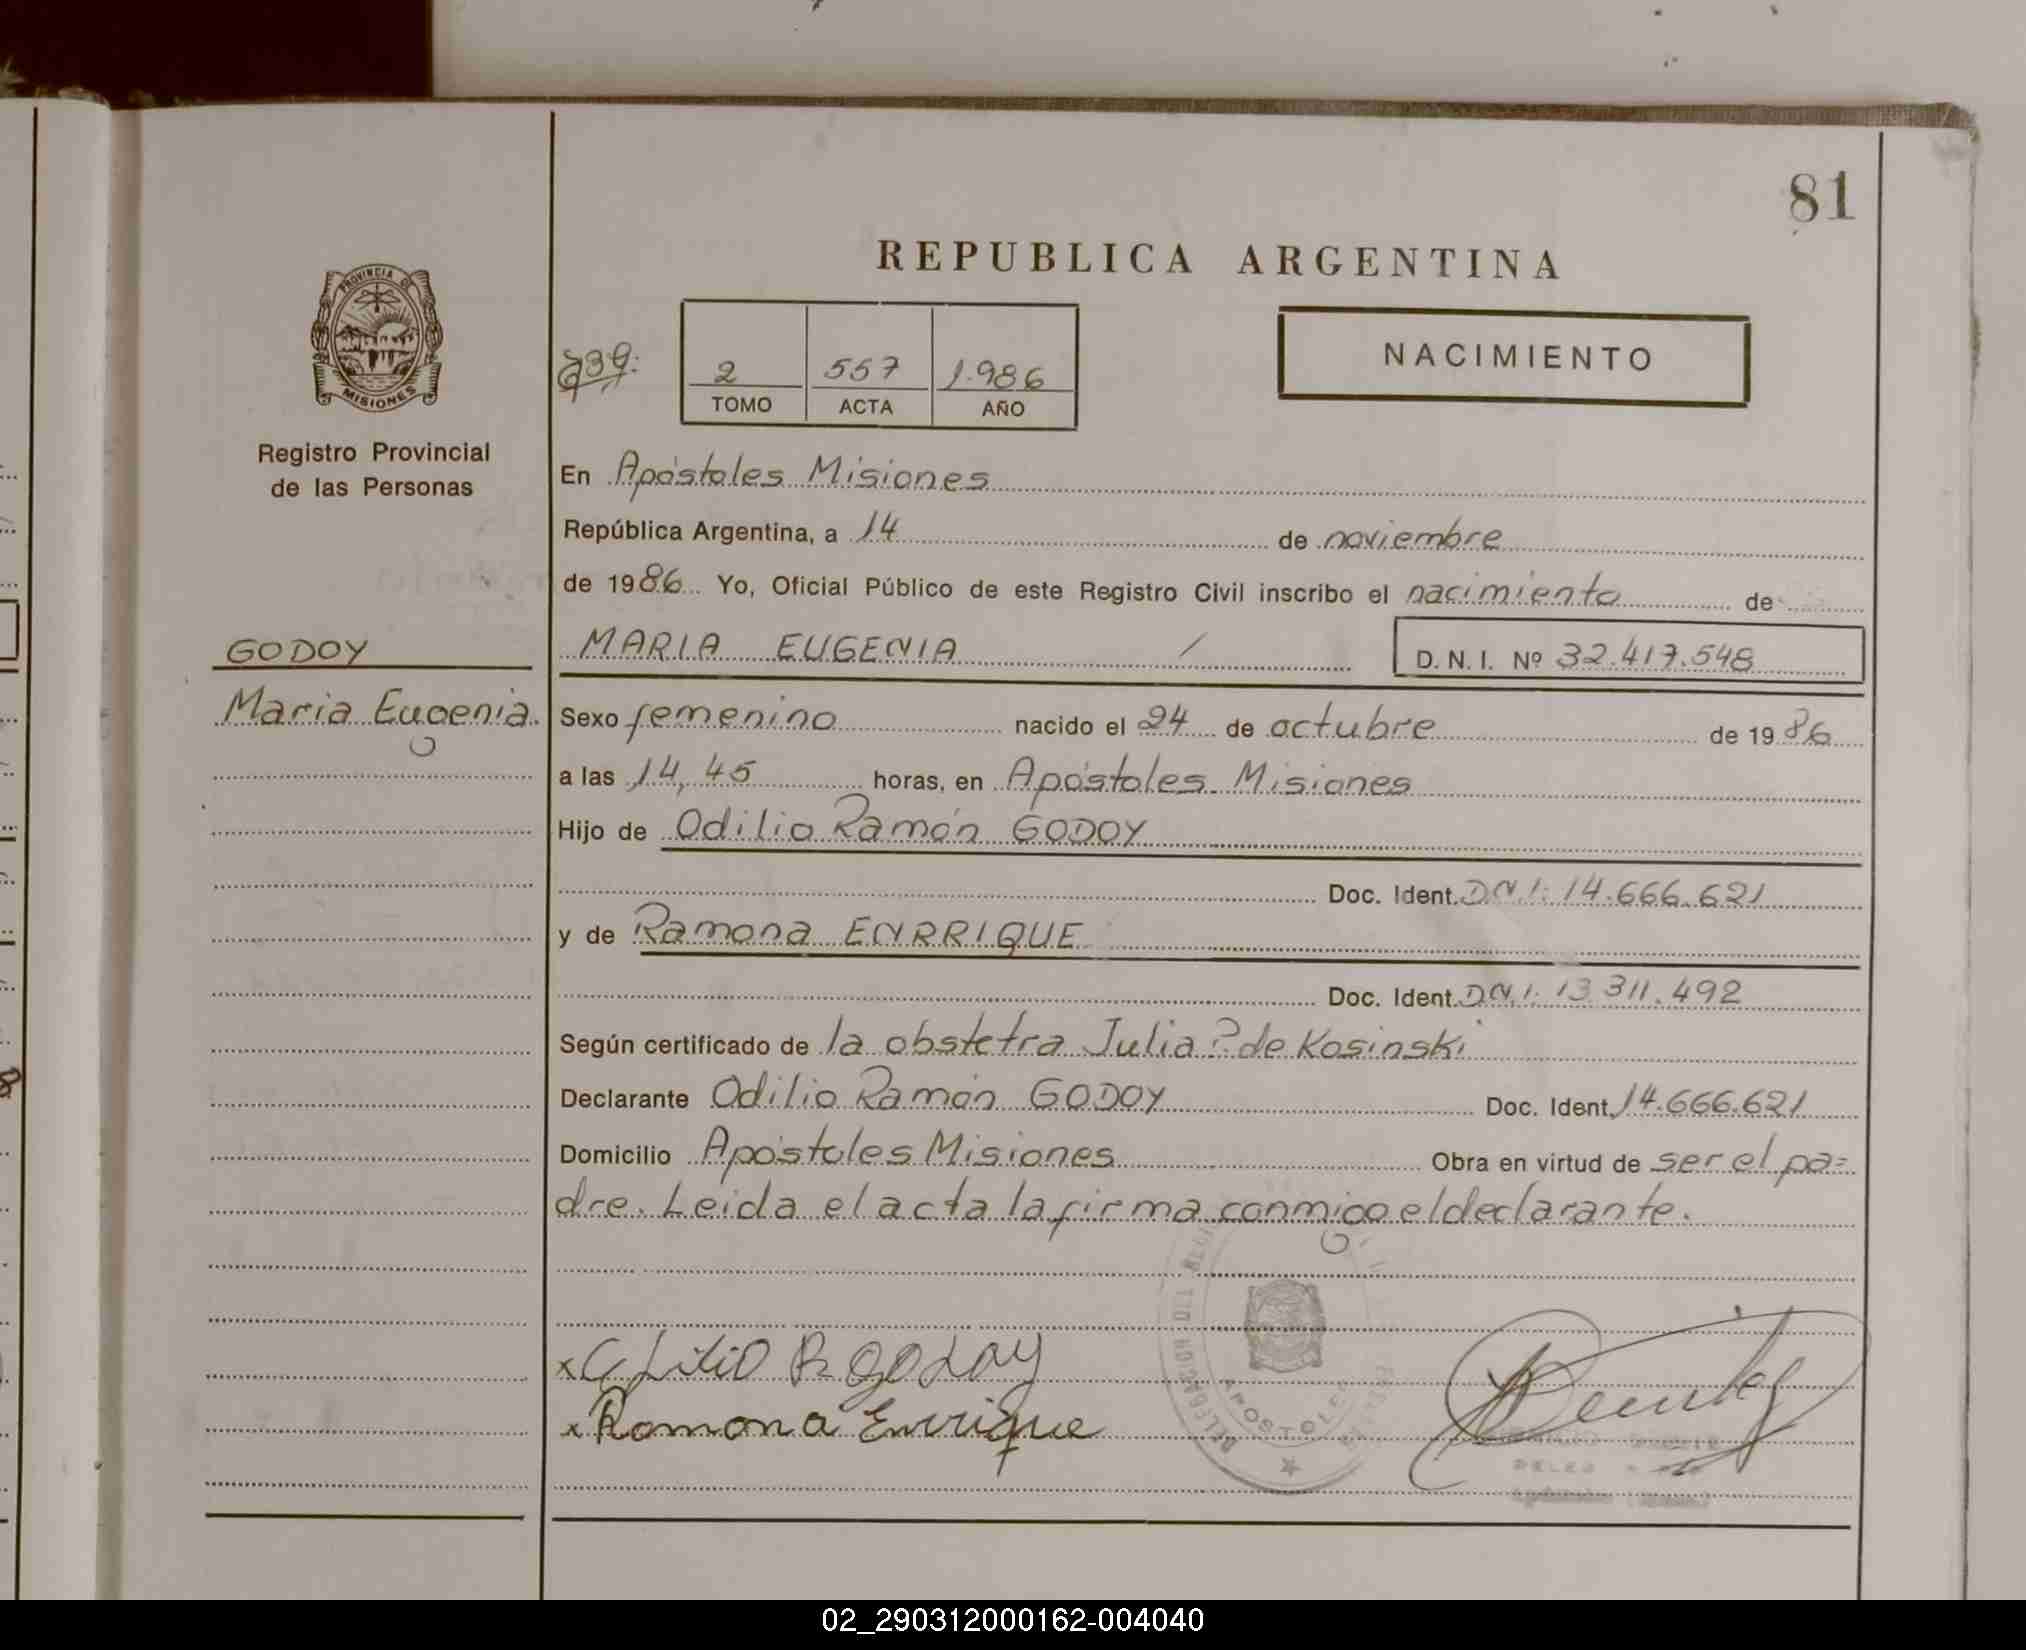 81
REPUBLICA ARGENTINA
PROVINCIA DE
MISIONES
Registro Provincial
de las Personas
239.
2 557 1.986
TOMO ACTA AÑO
NACIMIENTO
En Apóstoles Misiones
República Argentina, a 14 de noviembre
de 1986 Yo, Oficial Público de este Registro Civil inscribo el nacimiento de
GODOY
Maria Eugenia.
MARIA EUGENIA /
D. N. I. Nº 32.417.548
Sexo femenino nacido el 24 de octubre de 1986
a las 14,45 horas, en Apóstoles Misiones
Hijo de Odilio Ramón GODOY
Doc. Ident. D.N.I. 14.666.621
y de Ramona ENRRIQUE
Doc. Ident. D.N.I. 13.311.492
Según certificado de la obstetra Julia P. de Kosinski
Declarante Odilio Ramón GODOY Doc. Ident. 14.666.621
Domicilio Apóstoles Misiones Obra en virtud de ser el pa=
dre. Leida el acta la firma conmigo el declarante.
DELEGACION DEL
APOSTOLES
x R Godoy
x Ramona Enrrique
02_290312000162-004040